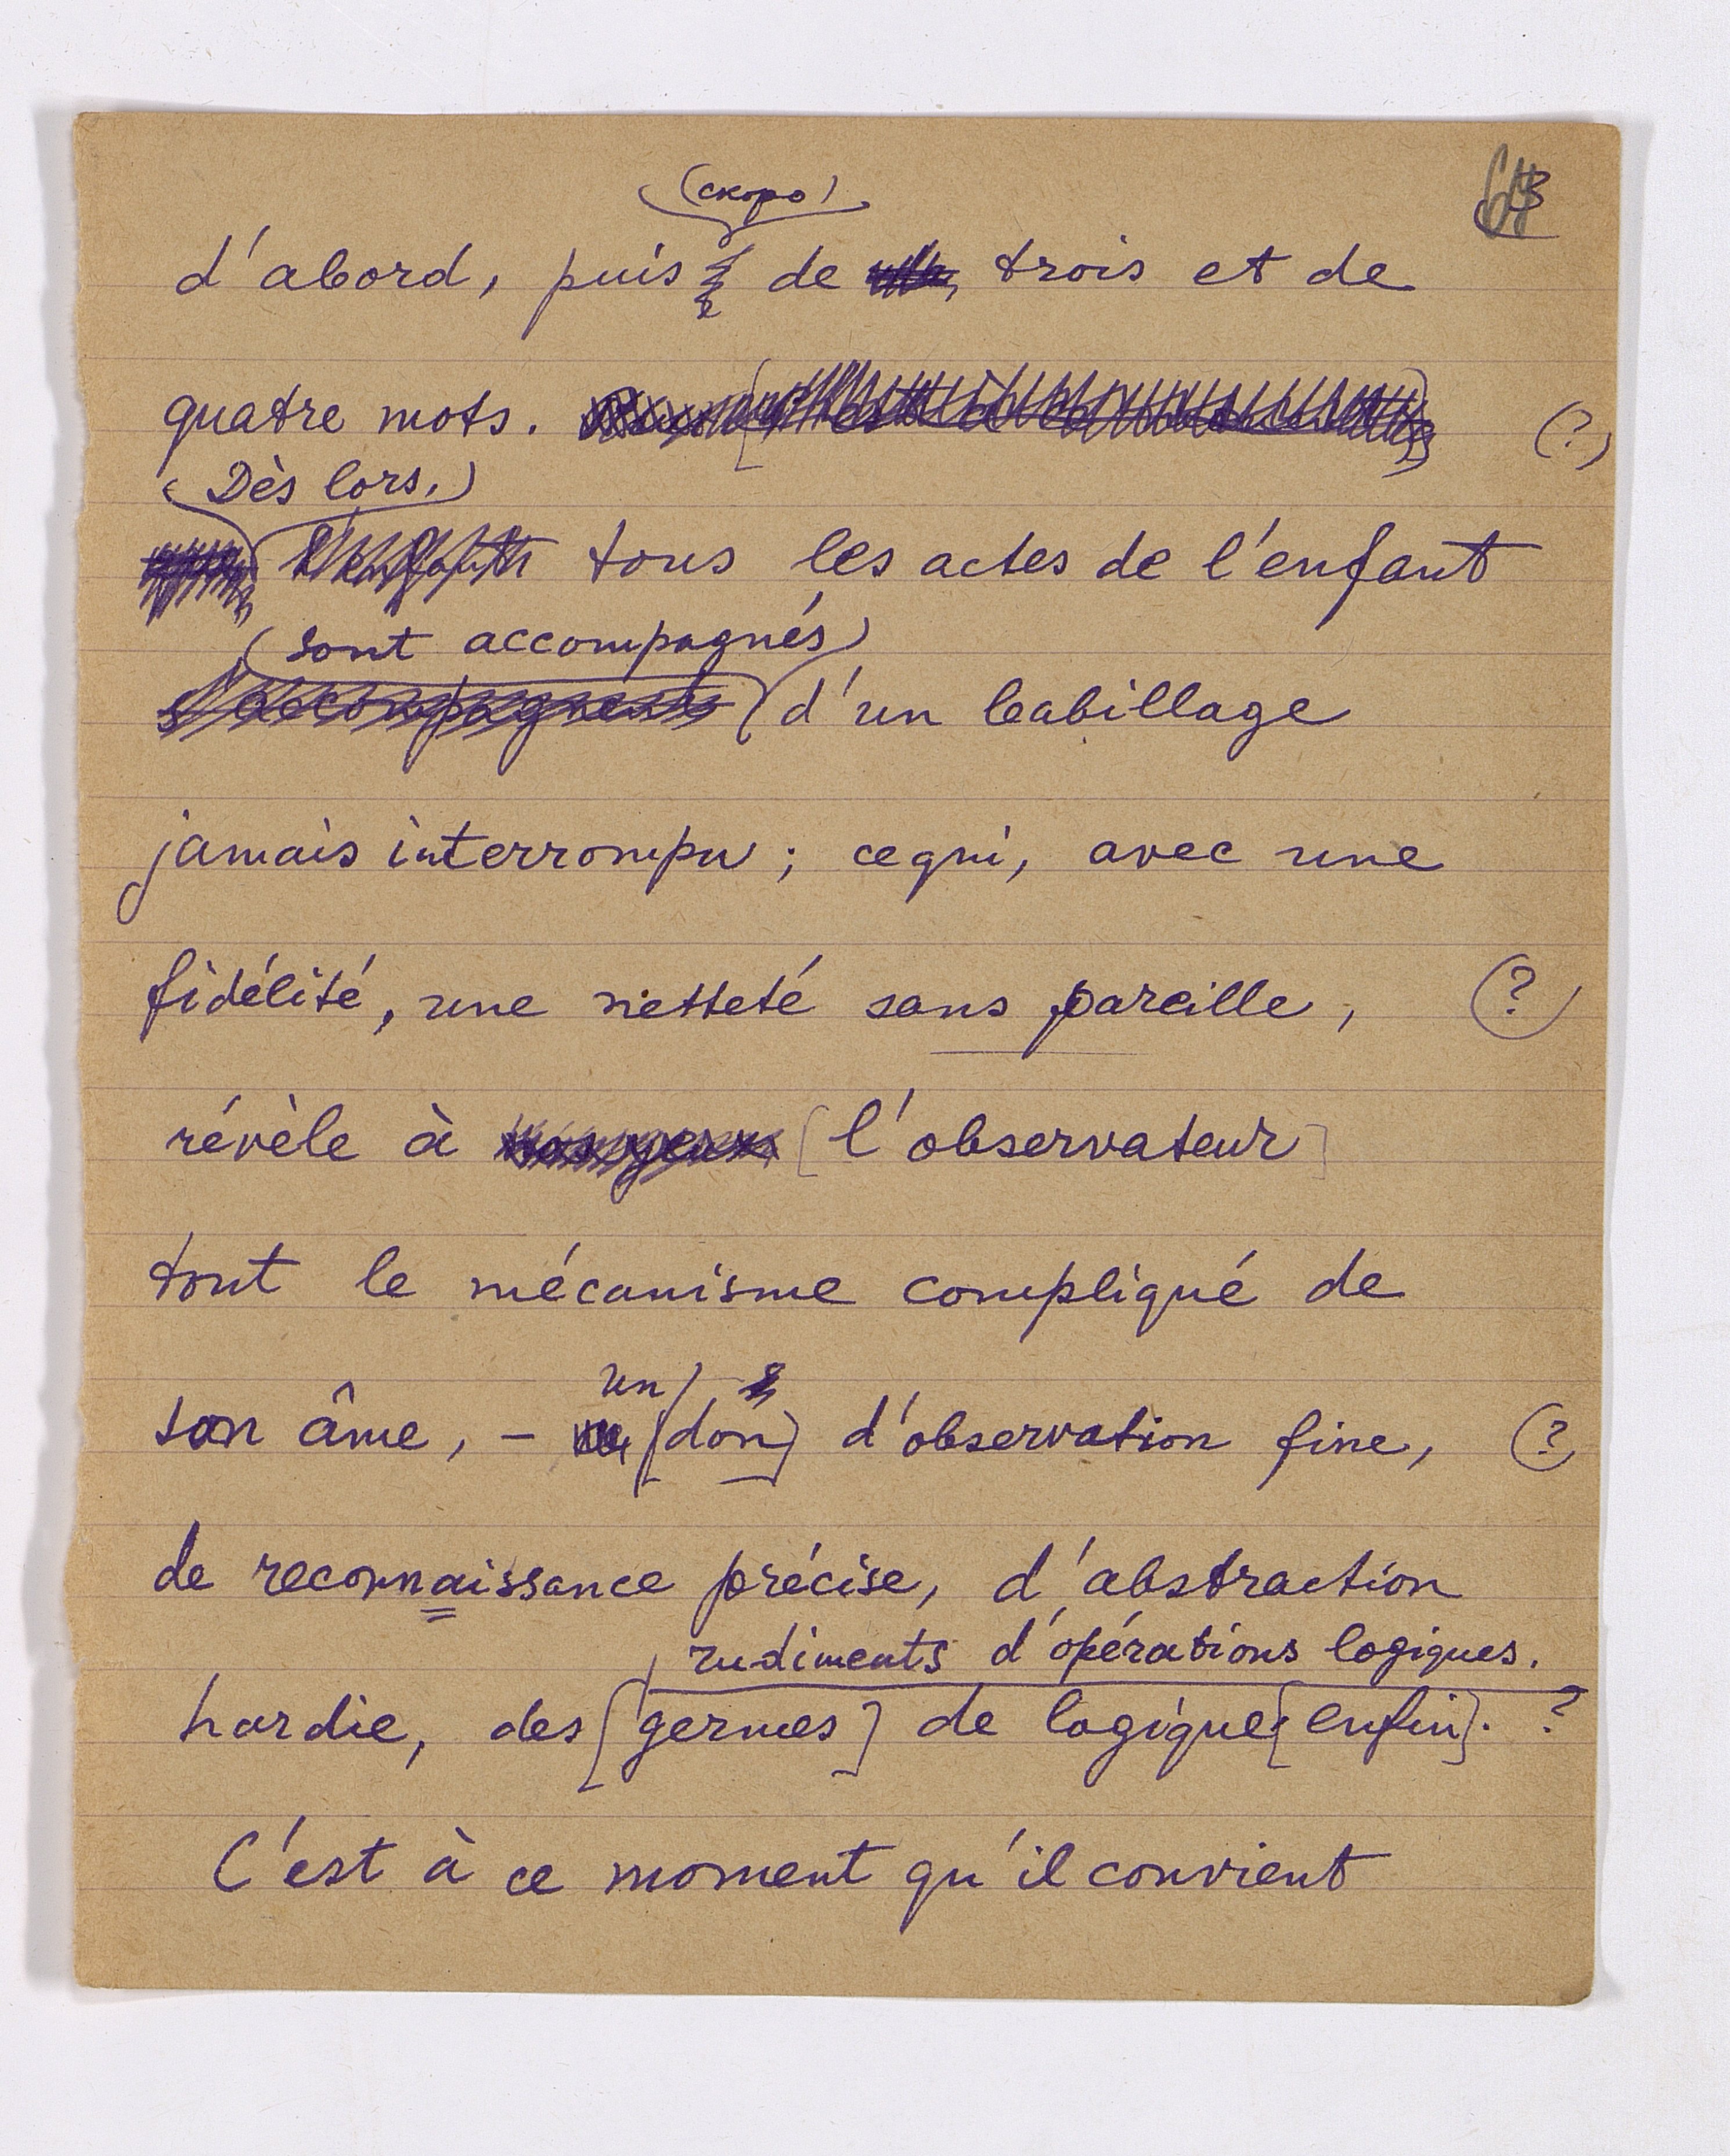 (скоро)
d'abord, puis de trois et de
quatre mots. (?)
(Dès lors,)
l'enfant tous les actes de l'enfant
(sont accompagnés)
s'accompagnent d'un babillage
jamais interrompu ; ce qui, avec une
fidélité, une netteté sans pareille, (?)
révèle à nos yeux [l'observateur]
tout le mécanisme compliqué de
un
son âme, – [don] d'observation fine, (?)
de reconnaissance précise, d'abstraction
rudiments d'opérations logiques.
hardie, des [germes] de logique [enfin]. ?
C'est à ce moment qu'il convient